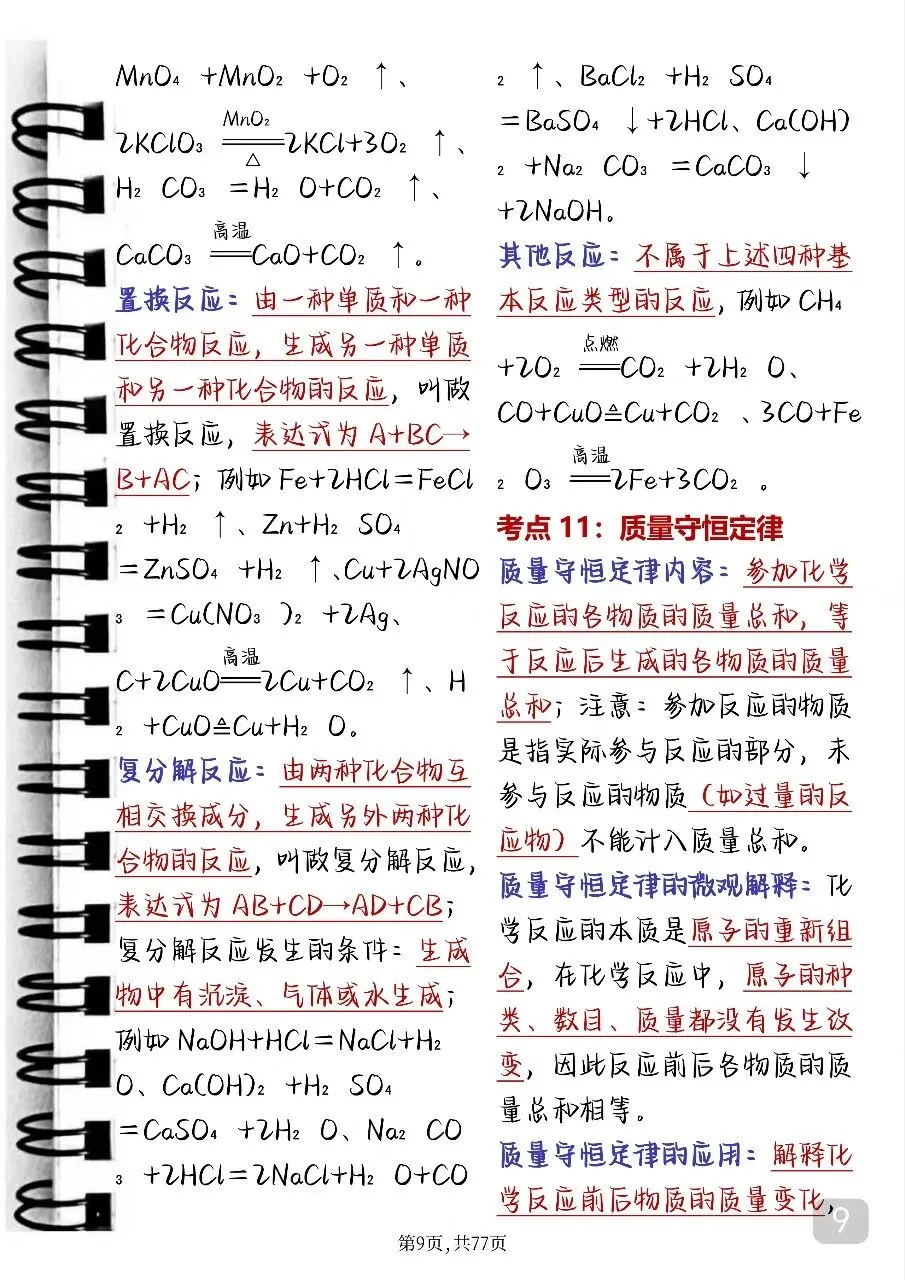 MnO₄ +MnO₂ +O₂ ↑、
MnO₂
2KClO₃ ══ 2KCl+3O₂ ↑、
△
H₂ CO₃ =H₂ O+CO₂ ↑、
高温
CaCO₃ ══CaO+CO₂ ↑。
置换反应：由一种单质和一种
化合物反应，生成另一种单质
和另一种化合物的反应，叫做
置换反应，表达式为 A+BC→
B+AC；例如 Fe+2HCl=FeCl
₂ +H₂ ↑、Zn+H₂ SO₄
=ZnSO₄ +H₂ ↑、Cu+2AgNO
₃ =Cu(NO₃ )₂ +2Ag、
高温
C+2CuO══2Cu+CO₂ ↑、H
₂ +CuO≜Cu+H₂ O。
复分解反应：由两种化合物互
相交换成分，生成另外两种化
合物的反应，叫做复分解反应，
表达式为 AB+CD→AD+CB；
复分解反应发生的条件：生成
物中有沉淀、气体或水生成；
例如 NaOH+HCl=NaCl+H₂
O、Ca(OH)₂ +H₂ SO₄
=CaSO₄ +2H₂ O、Na₂ CO
₃ +2HCl=2NaCl+H₂ O+CO
₂ ↑、BaCl₂ +H₂ SO₄
=BaSO₄ ↓+2HCl、Ca(OH)
₂ +Na₂ CO₃ =CaCO₃ ↓
+2NaOH。
其他反应：不属于上述四种基
本反应类型的反应，例如 CH₄
点燃
+2O₂ ══CO₂ +2H₂ O、
CO+CuO≜Cu+CO₂ 、3CO+Fe
高温
₂ O₃ ══2Fe+3CO₂ 。
考点 11：质量守恒定律
质量守恒定律内容：参加化学
反应的各物质的质量总和，等
于反应后生成的各物质的质量
总和；注意：参加反应的物质
是指实际参与反应的部分，未
参与反应的物质（如过量的反
应物）不能计入质量总和。
质量守恒定律的微观解释：化
学反应的本质是原子的重新组
合，在化学反应中，原子的种
类、数目、质量都没有发生改
变，因此反应前后各物质的质
量总和相等。
质量守恒定律的应用：解释化
学反应前后物质的质量变化，
9
第9页,共77页